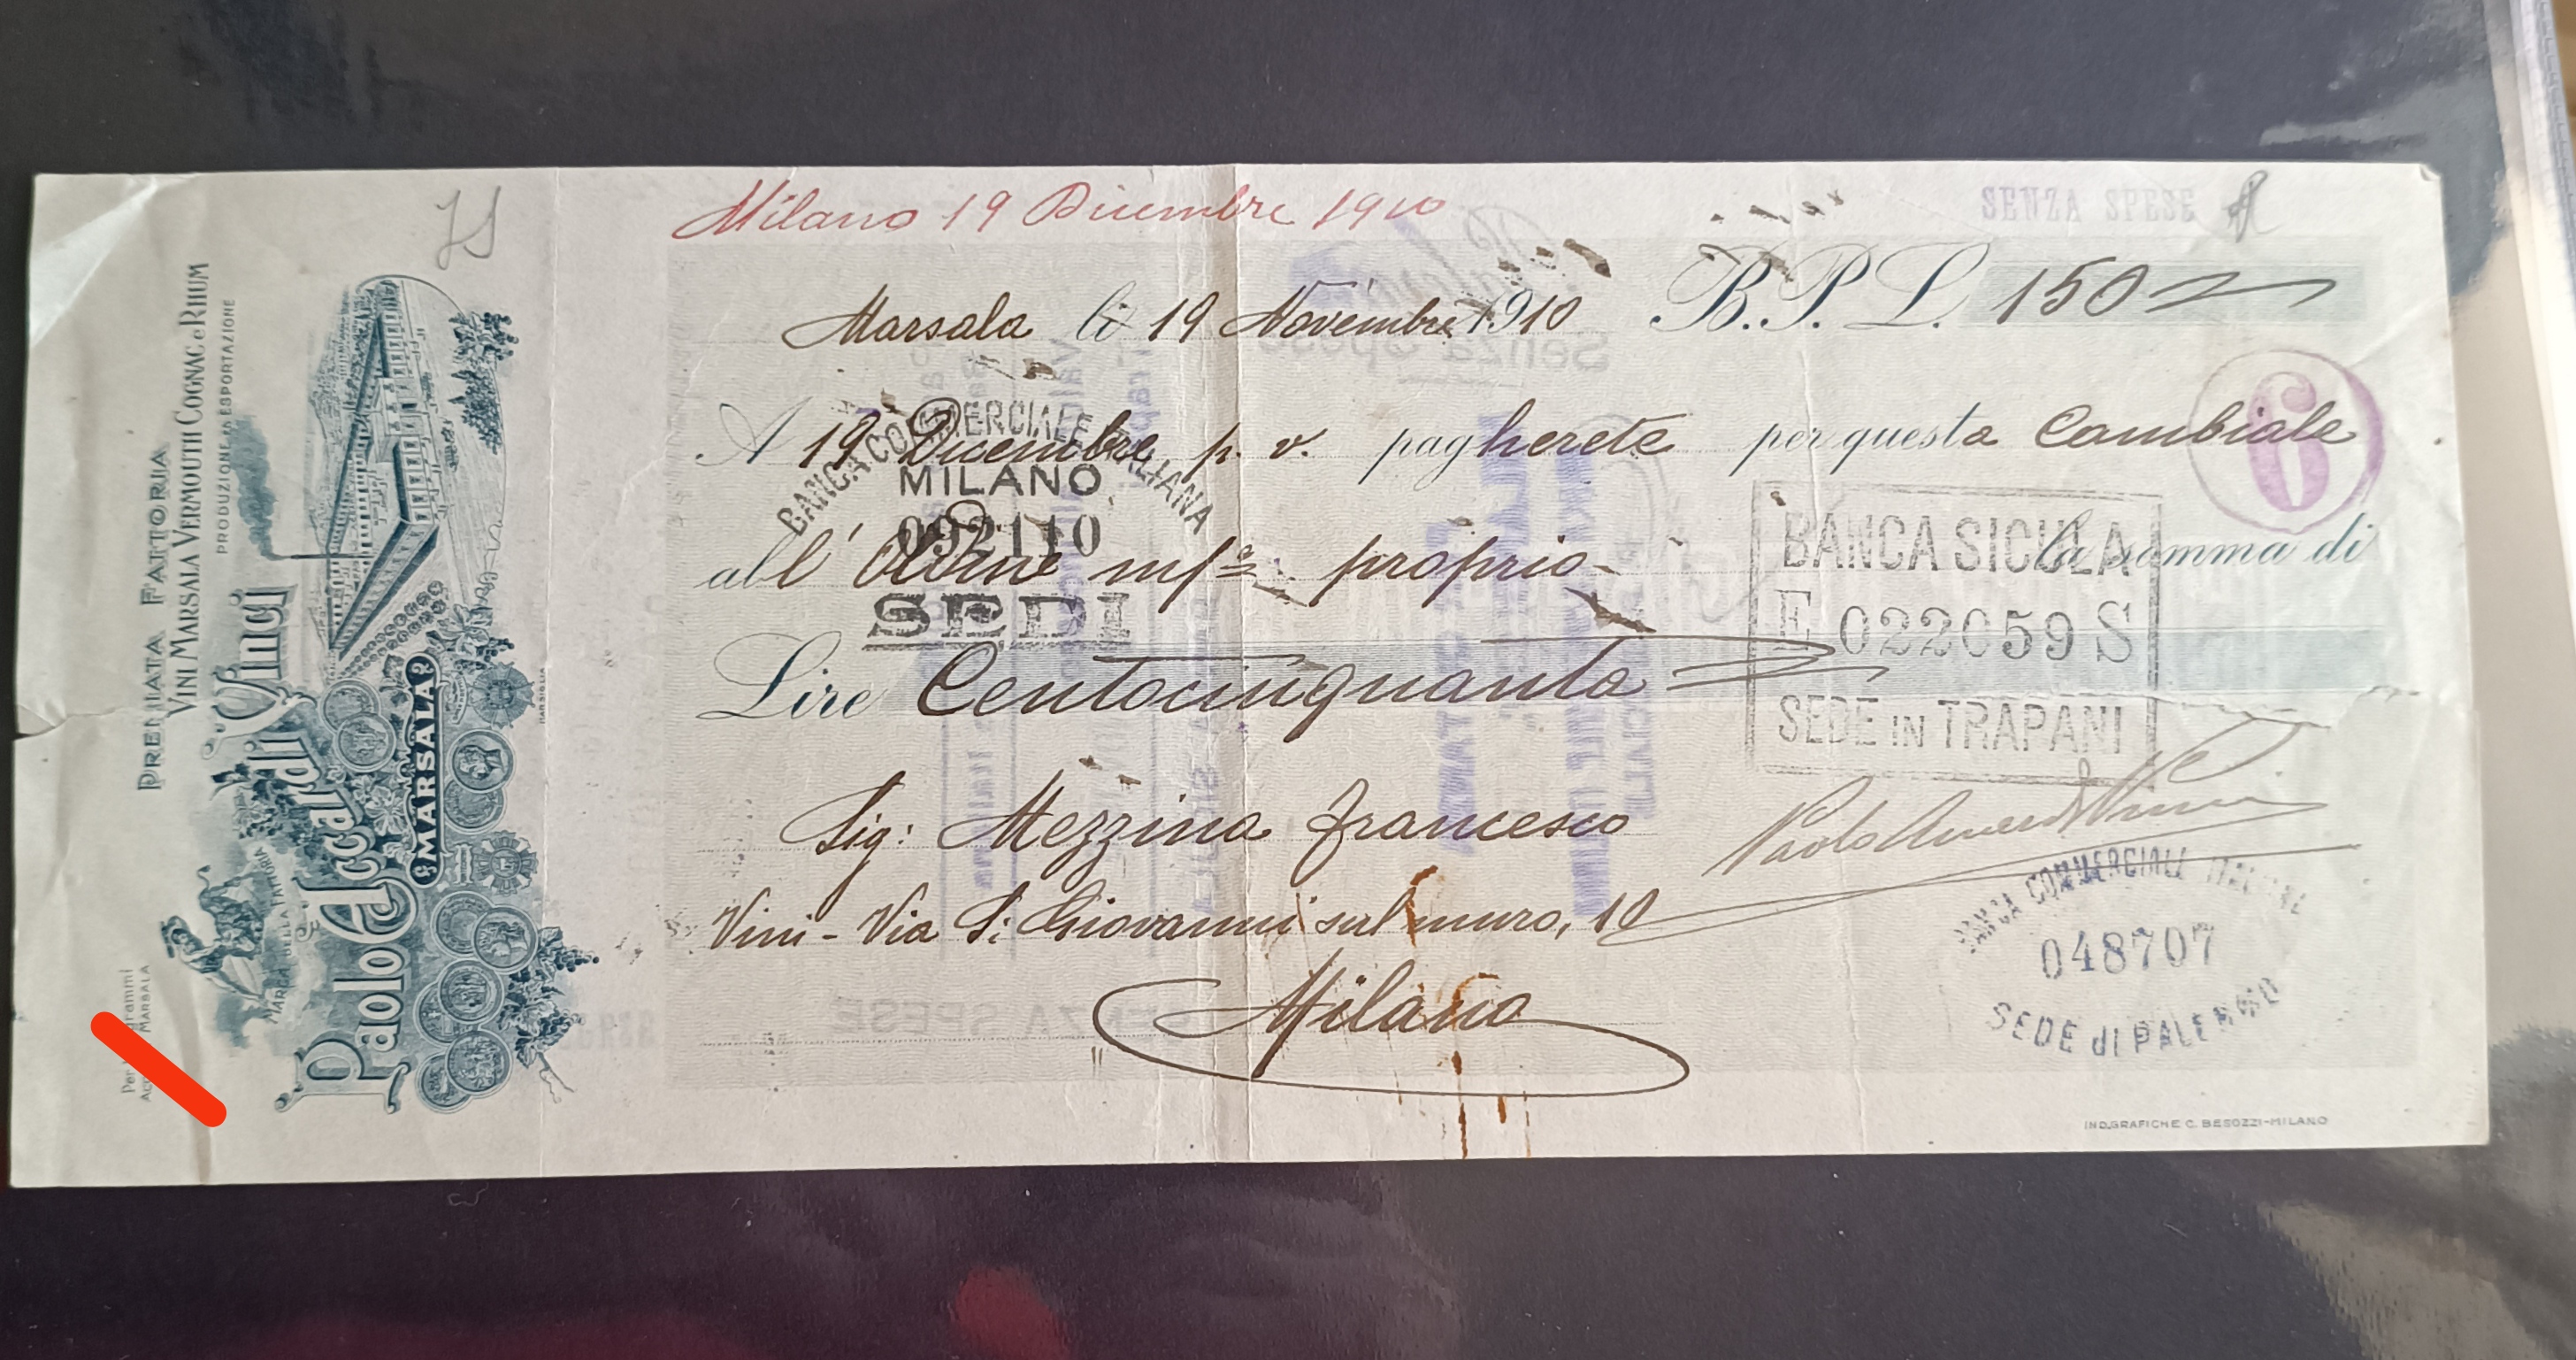 PREMIATA FATTORIA
VINI MARSALA VERMOUTH COGNAC e RHUM
PRODUZIONE ED ESPORTAZIONE
Paolo Accardi Vinci
MARSALA
MARCA DELLA FATTORIA
MARSALA
Milano 19 Dicembre 1910
SENZA SPESE
Marsala li 19 Novembre 1910 B.P.L. 150
6
A 19 Dicembre p. v. pagherete per questa Cambiale
BANCA COMMERCIALE ITALIANA
MILANO
092110
SEDI
all' Ordine m/o proprio la somma di
BANCA SICULA
E 022059 S
SEDE IN TRAPANI
Lire Centocinquanta
Sig: Mezzina Francesco
Vini - Via S: Giovanni sul muro, 10
Milano
BANCA COMMERCIALE ITALIANA
048707
SEDE di PALERMO
IND.GRAFICHE C. BESOZZI-MILANO